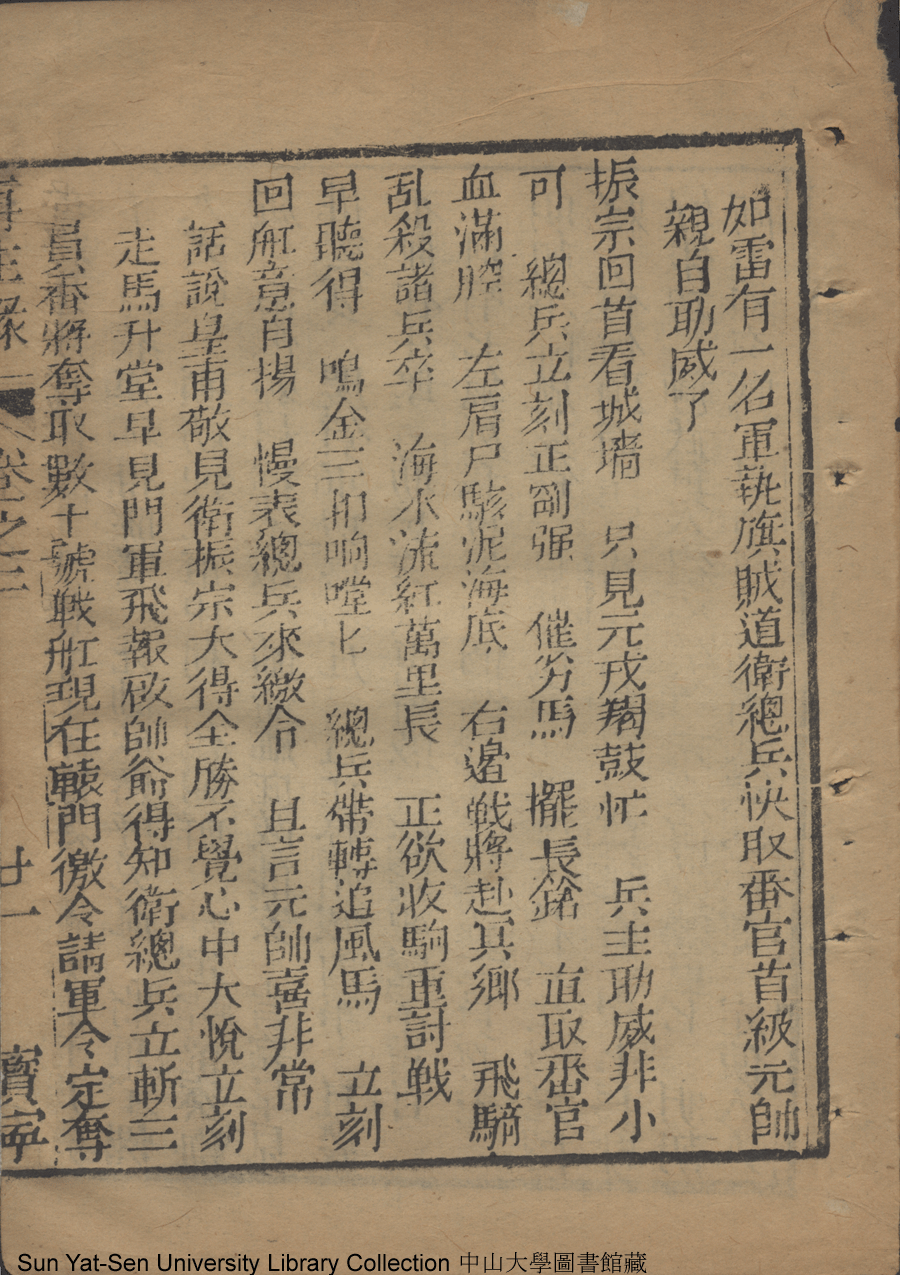 如雷有一名軍執旗賊道衛總兵快取番官首級元帥
親自助威了
振宗回首看城墻　只見元戎羯鼓忙　兵主助威非小
可　總兵立刻正剛强　催劣馬　擺長鎗　直取番官
血滿腔　左肩尸骸泥海底　右邉戰將赴冥鄉　飛騎
乱殺諸兵卒　海水流紅萬里長　正欲收駒重討戦
早聽得　鳴金三扣响嘡匕　總兵帶轉追風馬　立刻
回舡意自揚　慢表總兵來繳令　且言元帥喜非常
話說皇甫敬見衛振宗大得全勝不覺心中大悅立刻
走馬升堂早見門軍飛報啟帥爺得知衛總兵立斬三
員番將奪取數十號戰舡現在轅門徼令請軍令定奪
再生縁　卷之三　廿一　寳寧
Sun Yat-Sen University Library Collection 中山大學圖書館藏